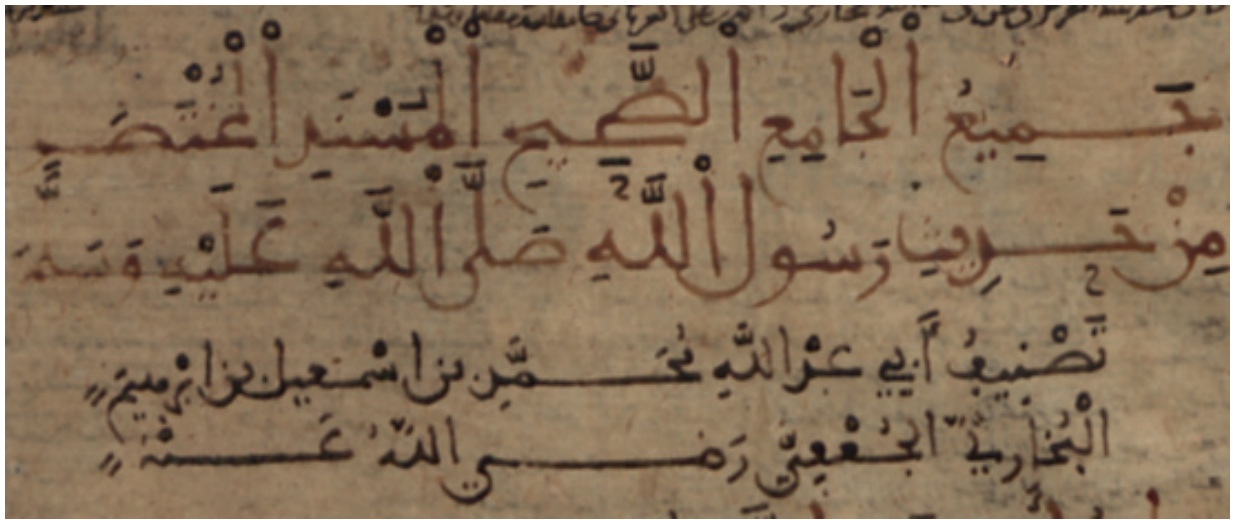 جَمِيعُ الْجَامِعِ الصَّحِيحِ الْمُسْنَدِ الْمُخْتَصَرِ
مِنْ حَدِيثِ رَسُولِ اللَّهِ صَلَّى اللَّهُ عَلَيْهِ وَسَلَّمَ
تَصْنِيفُ أَبِي عَبْدِ اللَّهِ مُحَمَّدِ بْنِ اسْمَعِيلَ بْنِ ابْرَهِيمَ
الْبُخَارِيِّ الْجُعْفِيِّ رَضِيَ اللَّهُ عَنْهُ